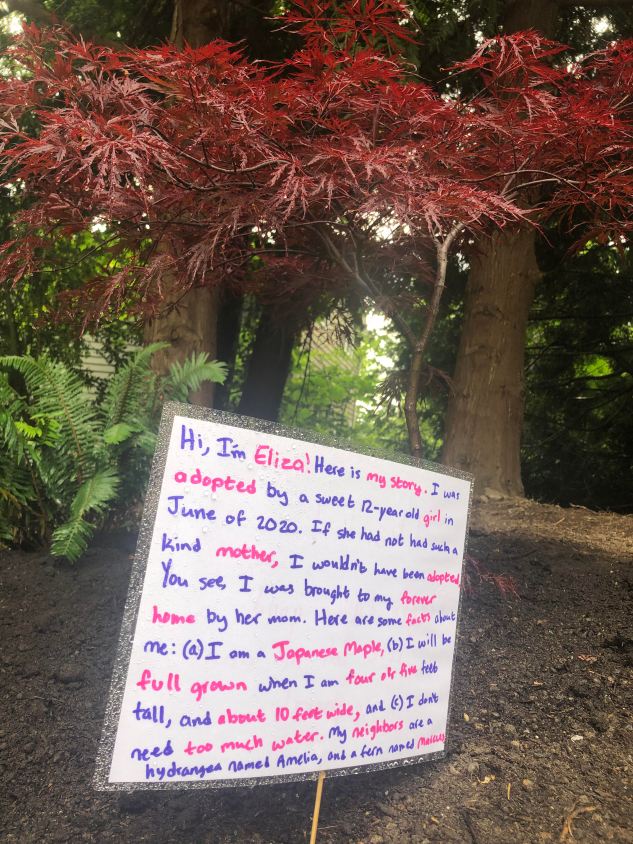 Hi, I'm Eliza! Here is my story. I was
adopted by a sweet 12-year old girl in
June of 2020. If she had not had such a
kind mother, I wouldn't have been adopted
You see, I was brought to my forever
home by her mom. Here are some facts about
me: (a) I am a Japanese Maple, (b) I will be
full grown when I am four o/r five feet
tall, and about 10 feet wide, and (c) I don't
need too much water. My neighbors are a
hydrangea named Amelia, and a fern named Marcus